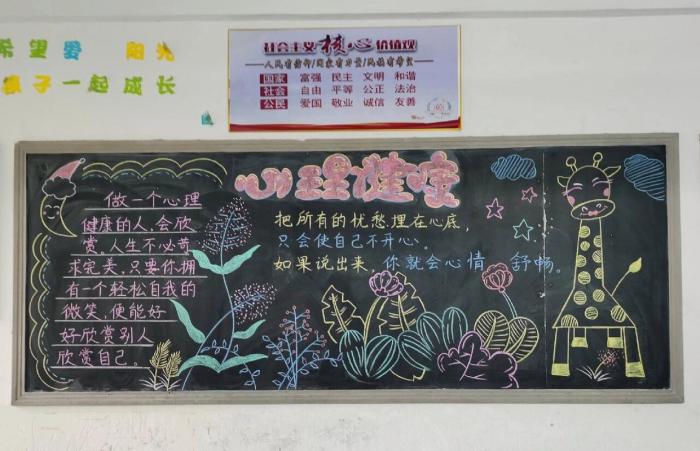 希望爱 阳光
孩子一起成长
社会主义核心价值观
人民有信仰/国家有力量/民族有希望
国家 富强 民主 文明 和谐
社会 自由 平等 公正 法治
公民 爱国 敬业 诚信 友善
心理健康
做一个心理
健康的人,会欣
赏,人生不必苛
求完美,只要你拥
有一个轻松自我的
微笑,便能好
好欣赏别人
欣赏自己。
把所有的忧愁埋在心底,
只会使自己不开心。
如果说出来,你就会心情 舒畅。